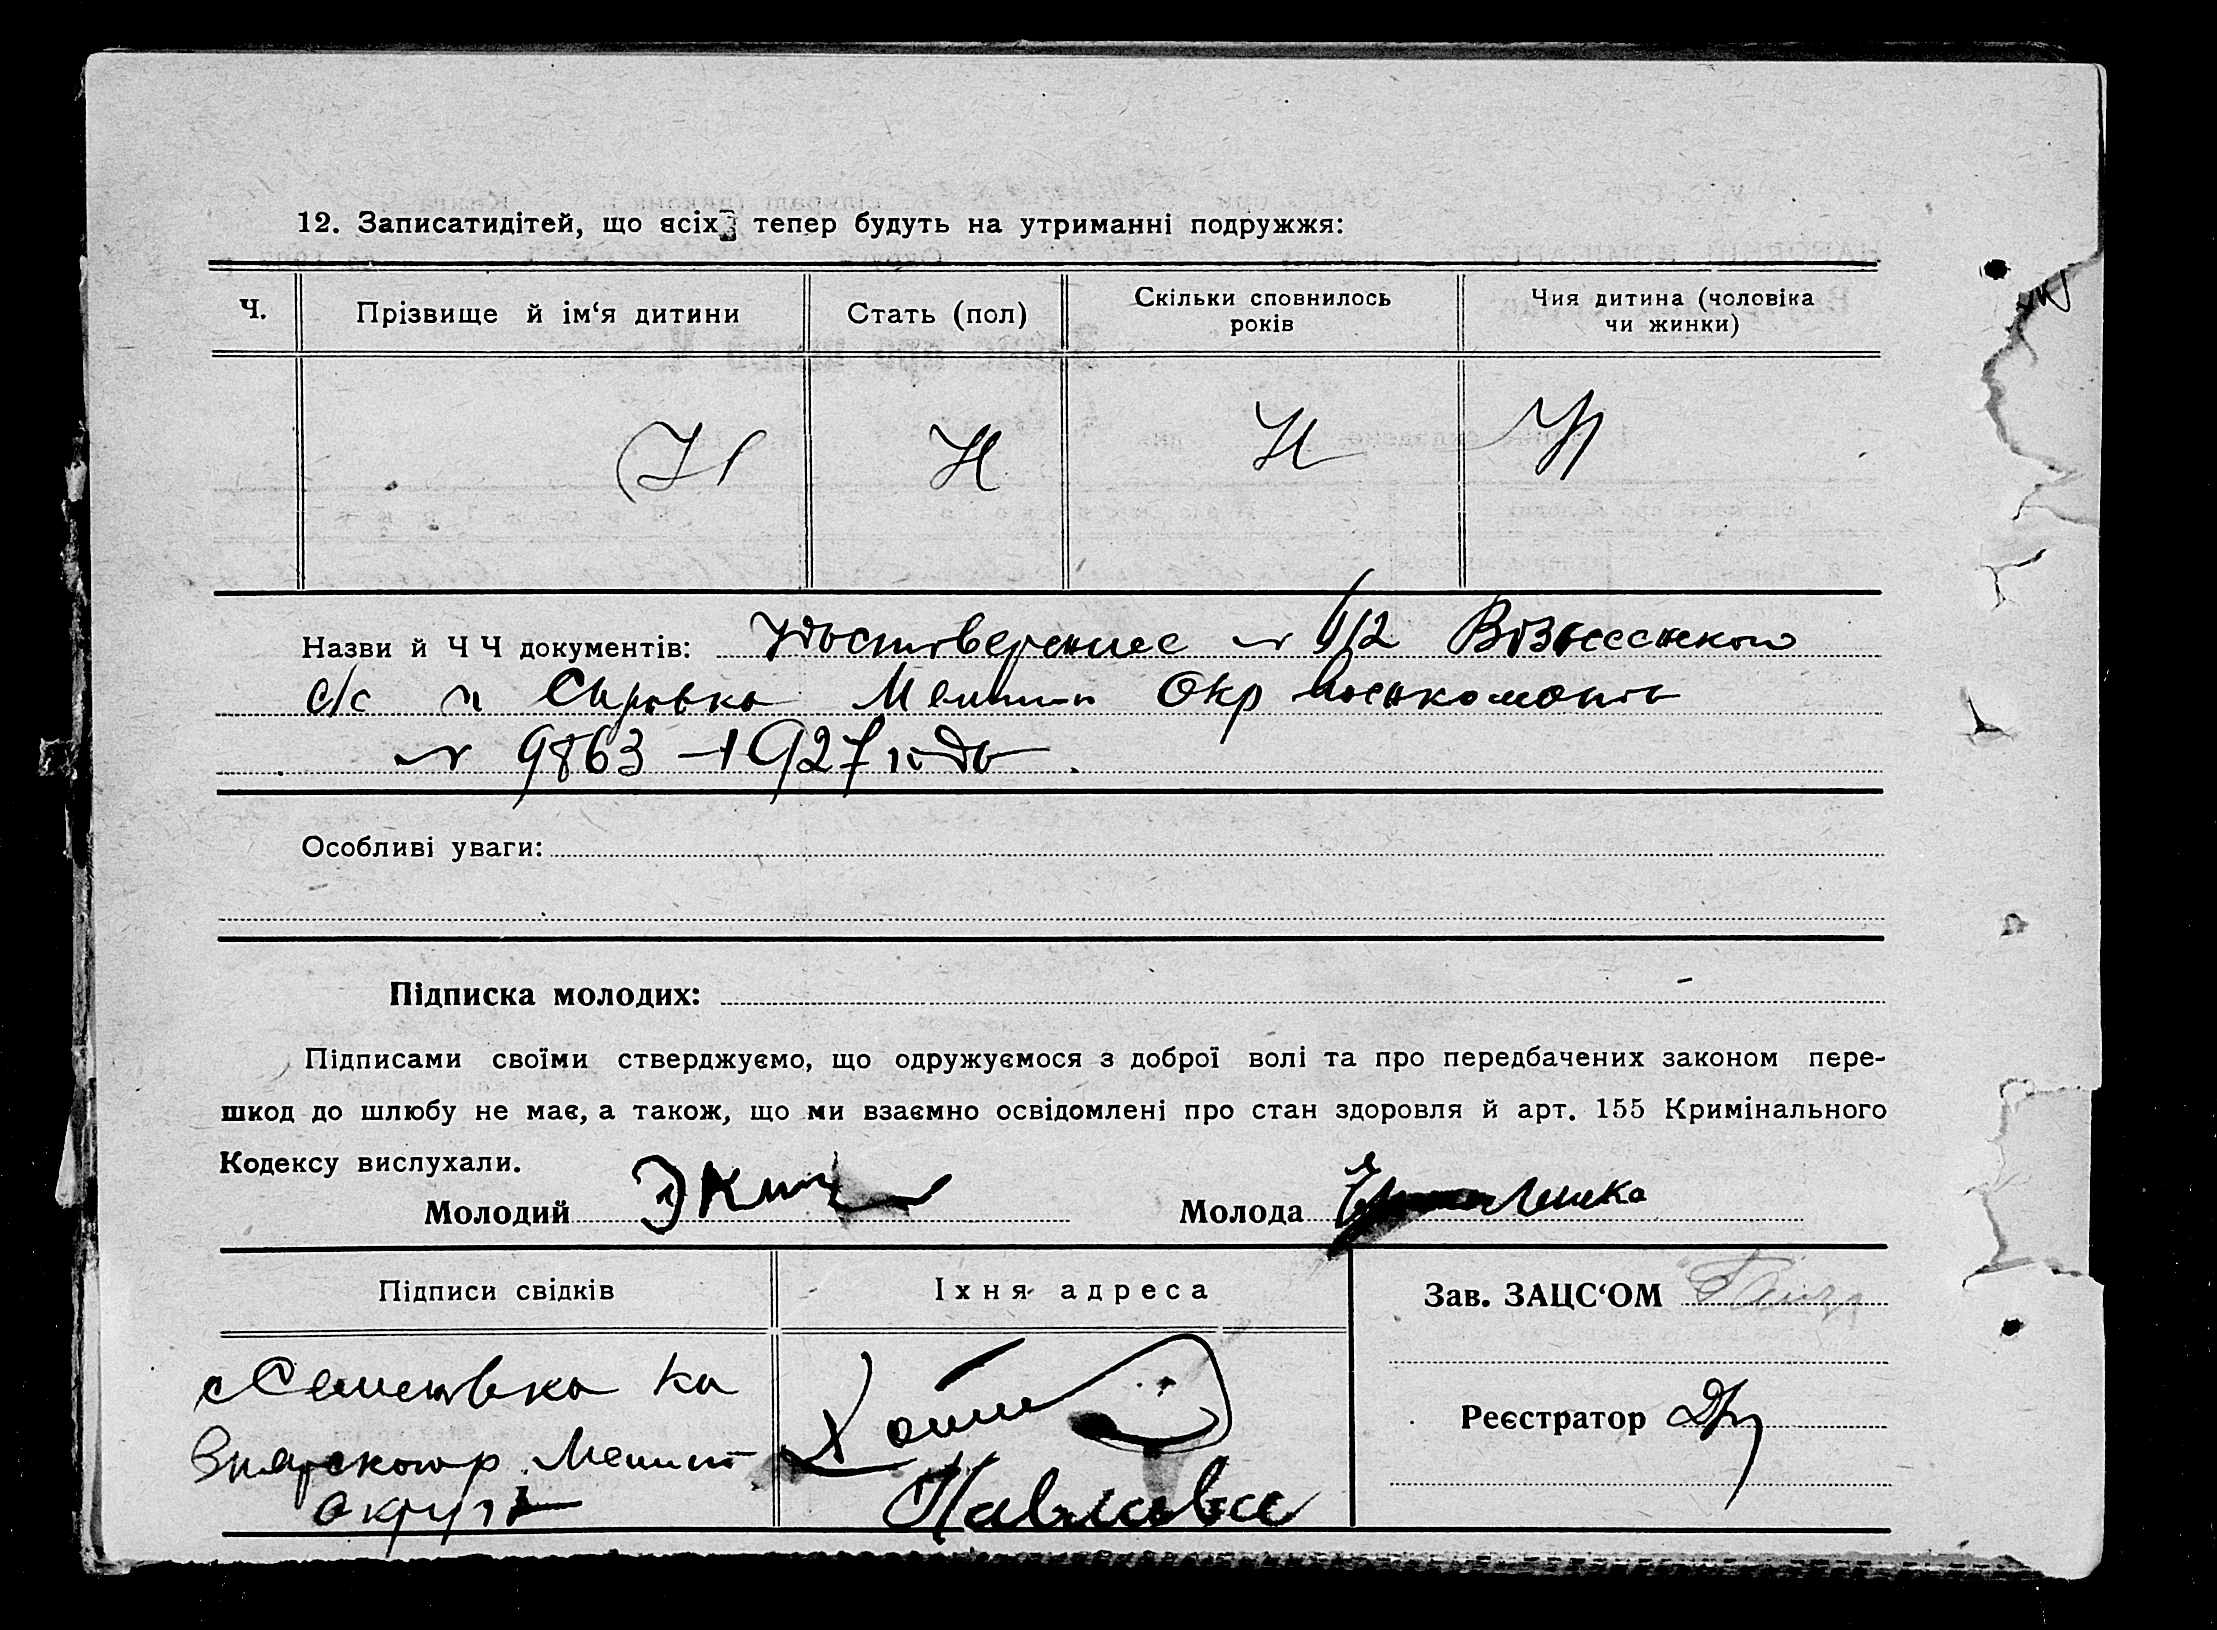 12. Записатидітей, що всіх тепер будуть на утриманні подружжя:
Ч. Прізвище й ім‘я дитини Стать (пол) Скільки сповнилось років Чия дитина (чоловіка чи жинки)
Н Н Н
Назви й Ч Ч документів: Удостоверение № 112 Вознесенского
с/с и Справка Мелит Окр военкомата
№ 9863 - 1927 года
Особливі уваги:
Підписка молодих:
Підписами своїми стверджуємо, що одружуємося з доброї волі та про передбачених законом пере-
шкод до шлюбу не має, а також, що ми взаємно освідомлені про стан здоровля й арт. 155 Кримінального
Кодексу вислухали.
Молодий Молода
Підписи свідків Їхня адреса Зав. ЗАЦС‘ОМ
Реєстратор
с Семеновка
Мелит
округа
Павлова